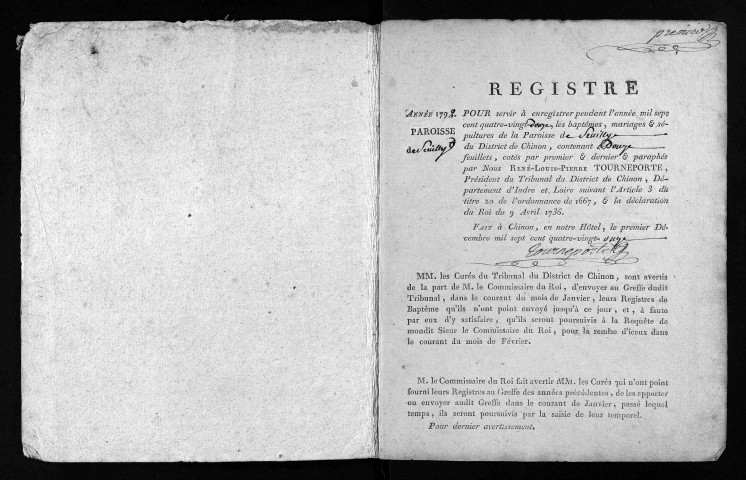 premier
REGISTRE
ANNÉE 1792.
PAROISSE
de Seuilly
POUR servir à enregistrer pendant l'année mil sept
cent quatre-vingt douze, les baptêmes, mariages & sé-
pultures de la Paroisse de Seuilly
du District de Chinon, contenant Douze
feuillets, cotés par premier & dernier & paraphés
par Nous RENÉ-LOUIS-PIERRE TOURNEPORTE,
Président du Tribunal du District de Chinon, Dé-
partement d'Indre et Loire suivant l'Article 3 du
titre 20 de l'ordonnance de 1667, & la déclaration
du Roi du 9 Avril 1736.
FAIT à Chinon, en notre Hôtel, le premier Dé-
cembre mil sept cent quatre-vingt onze
Tourneporte
MM. les Curés du Tribunal du District de Chinon, sont avertis
de la part de M. le Commissaire du Roi, d'envoyer au Greffe dudit
Tribunal, dans le courant du mois de Janvier, leurs Registres de
Baptême qu'ils n'ont point envoyé jusqu'à ce jour, et, à faute
par eux d'y satisfaire, qu'ils seront poursuivis à la Requête de
mondit Sieur le Commissaire du Roi, pour la remise d'iceux dans
le courant du mois de Février.
M. le Commissaire du Roi fait avertir MM. les Curés qui n'ont point
fourni leurs Registres au Greffe des années précédentes, de les apporter
ou envoyer audit Greffe dans le courant de Janvier, passé lequel
temps, ils seront poursuivis par la saisie de leur temporel.
Pour dernier avertissement.